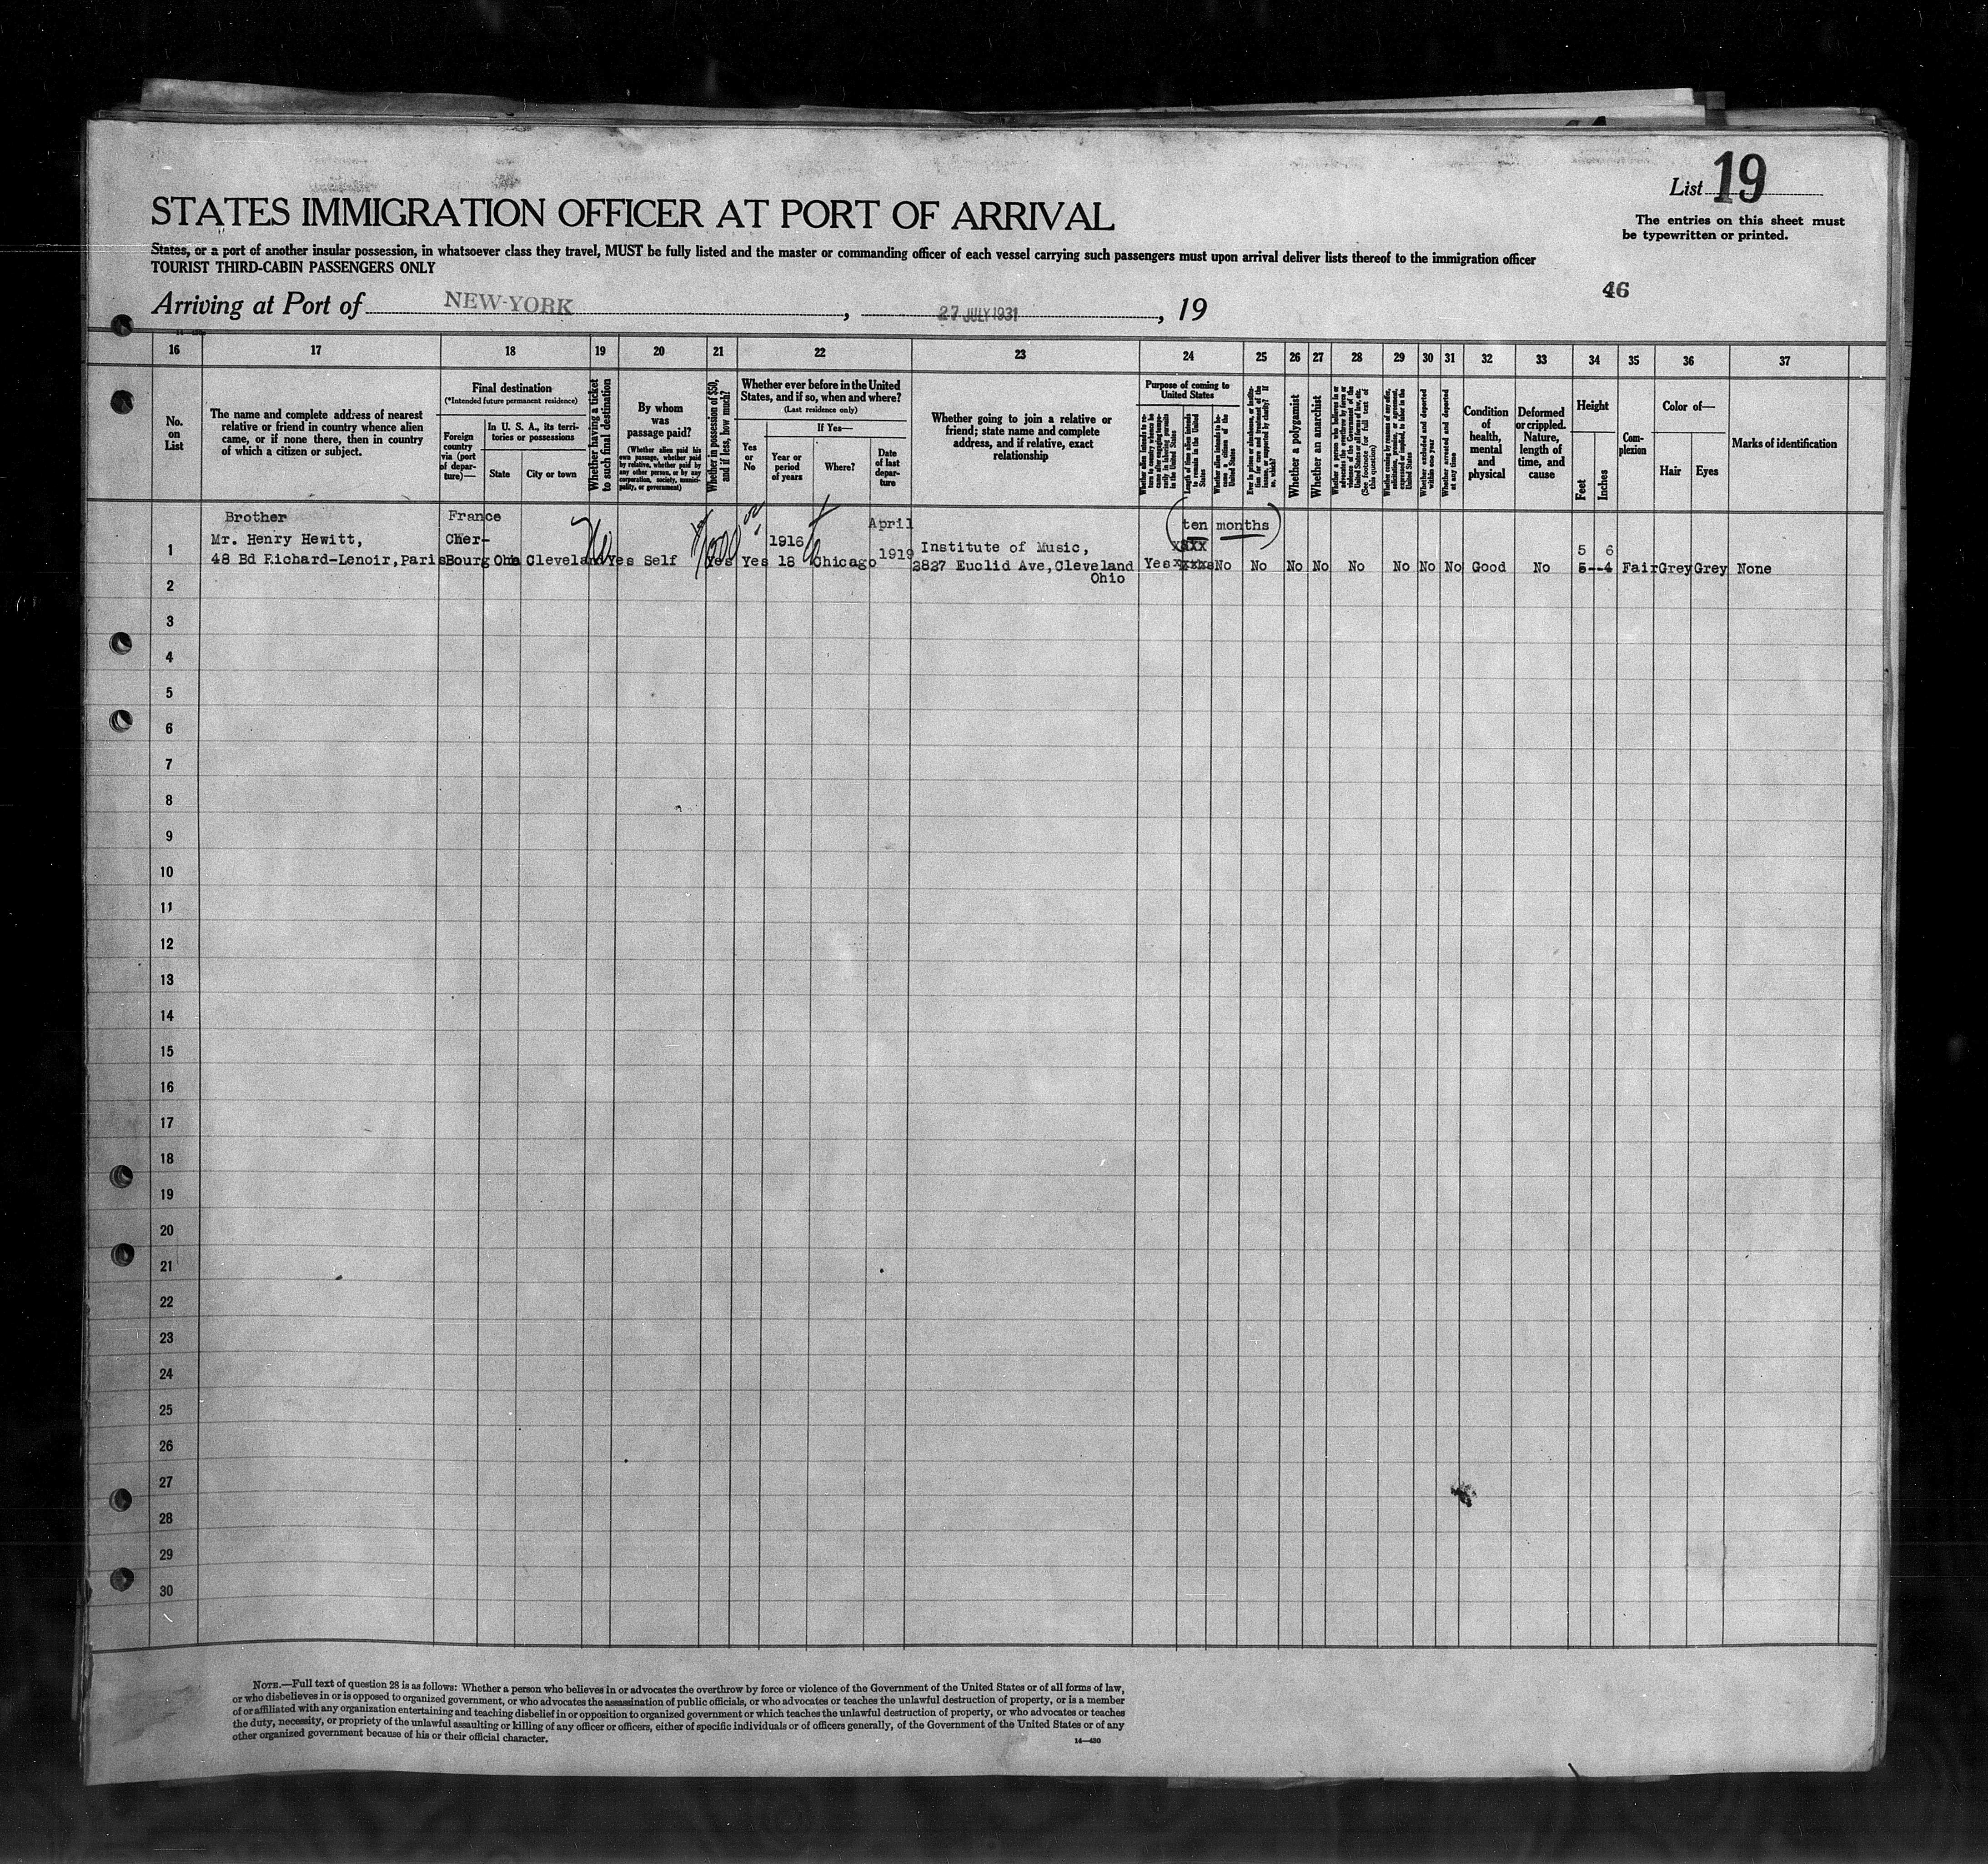 List 19
The entries on this sheet must
be typewritten or printed.
STATES IMMIGRATION OFFICER AT PORT OF ARRIVAL
States, or a port of another insular possession, in whatsoever class they travel, MUST be fully listed and the master or commanding officer of each vessel carrying such passengers must upon arrival deliver lists thereof to the immigration officer
TOURIST THIRD-CABIN PASSENGERS ONLY
46
Arriving at Port of NEW-YORK, 27 JULY 1931, 19
16 17 18 19 20 21 22 23 24 25 26 27 28 29 30 31 32 33 34 35 36 37
No.
on
List
The name and complete address of nearest
relative or friend in country whence alien
came, or if none there, then in country
of which a citizen or subject.
Final destination
(*Intended future permanent residence)
Foreign
country
via (port
of depar-
ture)—
In U. S. A., its terri-
tories or possessions
State
City or town
Whether having a ticket
to such final destination
By whom
was
passage paid?
(Whether alien paid his
own passage, whether paid
by relative, whether paid by
any other person, or by any
corporation, society, munici-
pality, or government)
Whether in possession of $50,
and if less, how much?
Whether ever before in the United
States, and if so, when and where?
(Last residence only)
Yes
or
No
If Yes—
Year or
period
of years
Where?
Date
of last
depar-
ture
Whether going to join a relative or
friend; state name and complete
address, and if relative, exact
relationship
Purpose of coming to
United States
Length of time alien intends
to remain in the United
States
Whether alien intends to be-
come a citizen of the
United States
Whether a polygamist
Whether an anarchist
Whether excluded and deported
within one year
Whether arrested and deported
at any time
Condition
of
health,
mental
and
physical
Deformed
or crippled.
Nature,
length of
time, and
cause
Height
Feet
Inches
Com-
plexion
Color of—
Hair
Eyes
Marks of identification
Brother France April (ten months)
Mr. Henry Hewitt, Cher- 1916 5 6
1 48 Bd Richard-Lenoir, Paris Bourg Ohio Cleveland Yes Self Yes Yes 18 Chicago 1919 Institute of Music,
2827 Euclid Ave, Cleveland Yes No No No No No No No No Good No 5--4 Fair Grey Grey None
Ohio
2
3
4
5
6
7
8
9
10
11
12
13
14
15
16
17
18
19
20
21
22
23
24
25
26
27
28
29
30
NOTE.—Full text of question 28 is as follows: Whether a person who believes in or advocates the overthrow by force or violence of the Government of the United States or of all forms of law,
or who disbelieves in or is opposed to organized government, or who advocates the assassination of public officials, or who advocates or teaches the unlawful destruction of property, or is a member
of or affiliated with any organization entertaining and teaching disbelief in or opposition to organized government or which teaches the unlawful destruction of property, or who advocates or teaches
the duty, necessity, or propriety of the unlawful assaulting or killing of any officer or officers, either of specific individuals or of officers generally, of the Government of the United States or of any
other organized government because of his or their official character.
14—430